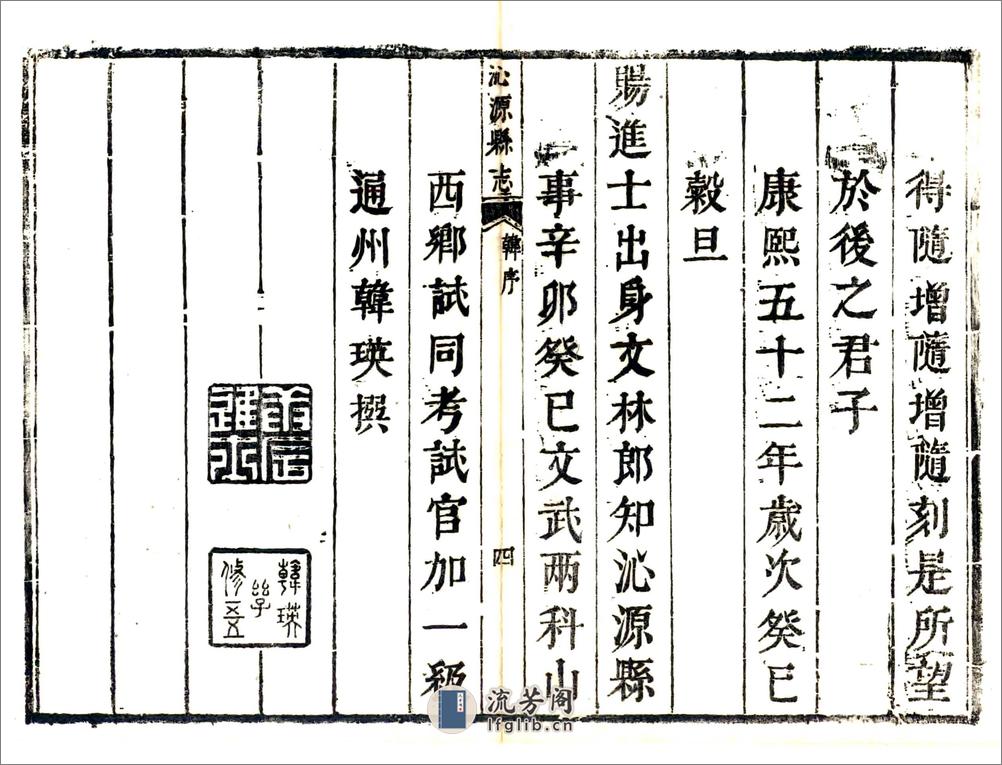 得隨增隨增隨刻是所望
於後之君子
康熙五十二年歲次癸巳
穀旦
賜進士出身文林郎知沁源縣
事辛卯癸巳文武兩科山
沁源縣志
韓序
四
西鄉試同考試官加一級
通州韓瑛撰
韓瑛
字
修五
流芳阁
lfglib.cn